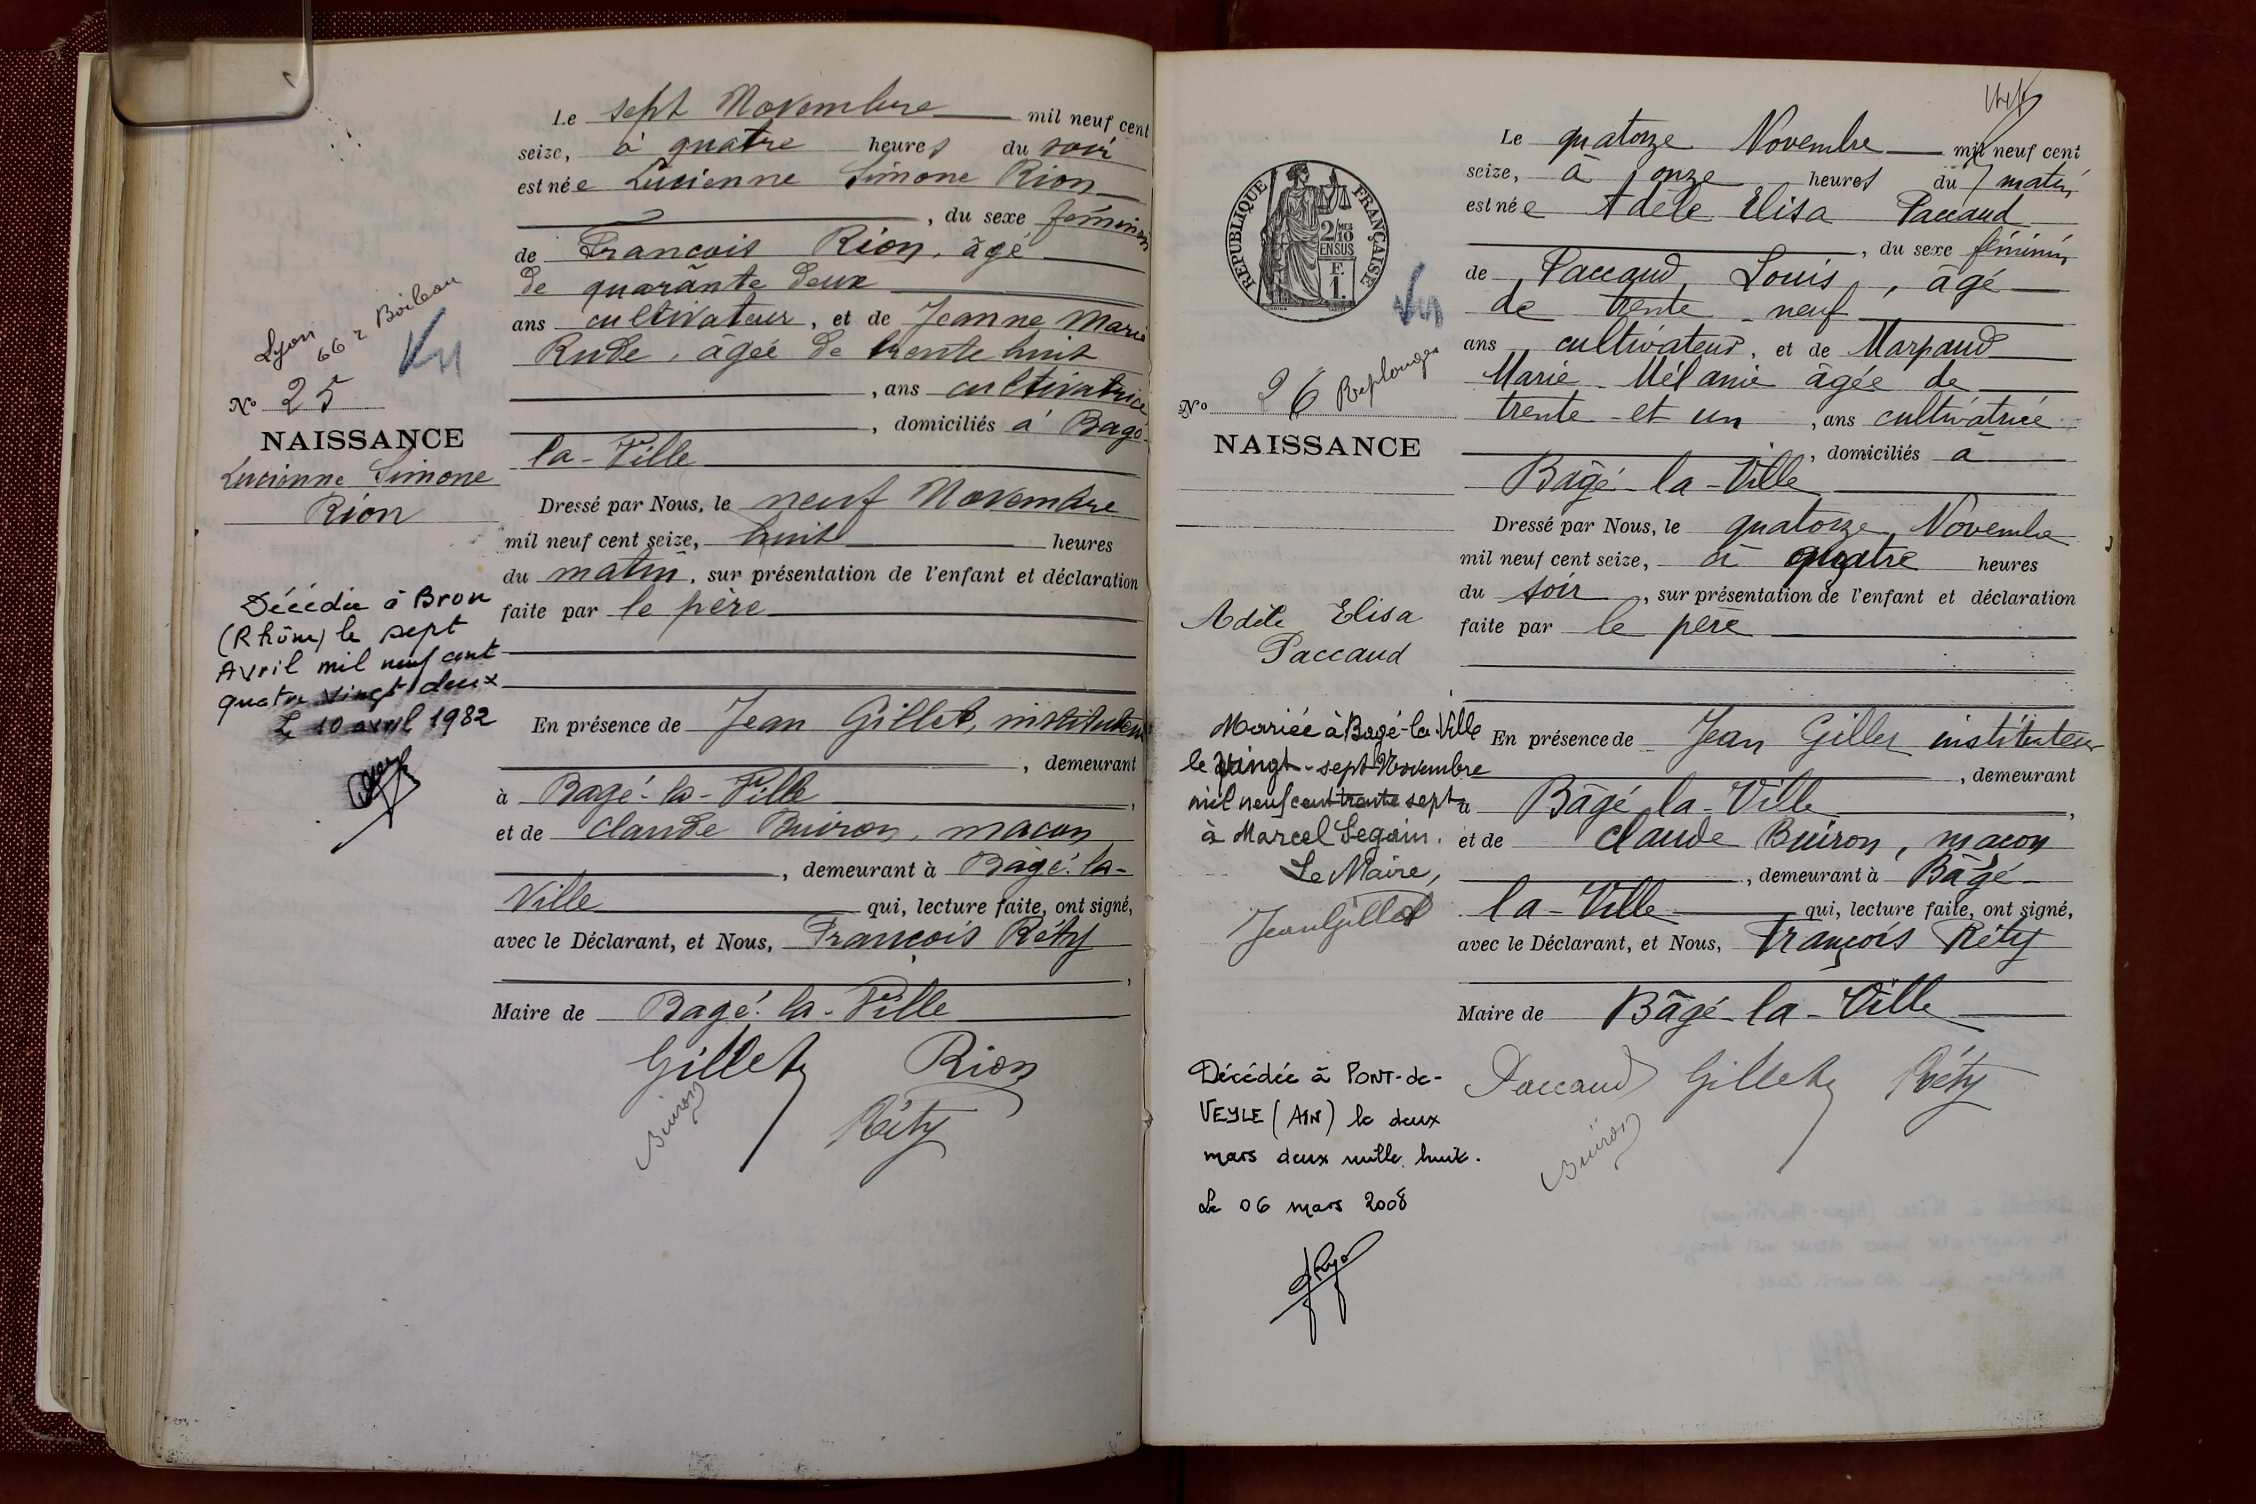 Lyon
66 r Boileau
Nº 25
NAISSANCE
Lucienne Simone
Rion
Décédée à Bron
(Rhône) le sept
Avril mil neuf cent
quatre vingt deux
Le 10 avril 1982
Le sept Novembre mil neuf cent
seize, à quatre heures du soir
est née Lucienne Simone Rion
, du sexe féminin
de François Rion, âgé
de quarante deux
ans cultivateur, et de Jeanne Marie
Rude, âgée de trente huit
, ans cultivatrice
, domiciliés à Bagé-
la-Ville
Dressé par Nous, le neuf Novembre
mil neuf cent seize, huit heures
du matin, sur présentation de l'enfant et déclaration
faite par le père
En présence de Jean Gillet, instituteur
, demeurant
à Bagé-la-Ville,
et de Claude Buiron, maçon
, demeurant à Bâgé-la-
Ville qui, lecture faite, ont signé,
avec le Déclarant, et Nous, François Réty
,
Maire de Bagé-la-Ville
Gillet Rion
Buiron Réty
RÉPUBLIQUE FRANÇAISE
2/10
EN SUS
F.
1.
Nº 26 Replonges
NAISSANCE
Adèle Elisa
Paccaud
Mariée à Bagé-la-Ville
le vingt-sept Novembre
mil neuf cent trente sept
à Marcel Legain.
Le Maire,
Jean Gillet
Décédée à PONT-de-
VEYLE (AIN) le deux
mars deux mille huit.
Le 06 mars 2008
Le quatorze Novembre mil neuf cent
seize, à onze heures du matin
est née Adèle Elisa Paccaud
, du sexe féminin
de Paccaud Louis, âgé
de trente-neuf
ans cultivateur, et de Marpaud
Marie-Mélanie âgée de
trente-et un, ans cultivatrice
, domiciliés à
Bâgé-la-Ville
Dressé par Nous, le quatorze Novembre
mil neuf cent seize, à quatre heures
du soir, sur présentation de l'enfant et déclaration
faite par le père
En présence de Jean Gillet instituteur
, demeurant
à Bâgé-la-Ville,
et de Claude Buiron, maçon
, demeurant à Bâgé-
la-Ville qui, lecture faite, ont signé,
avec le Déclarant, et Nous, François Réty
Maire de Bâgé-la-Ville
Paccaud Gillet Réty
Buiron